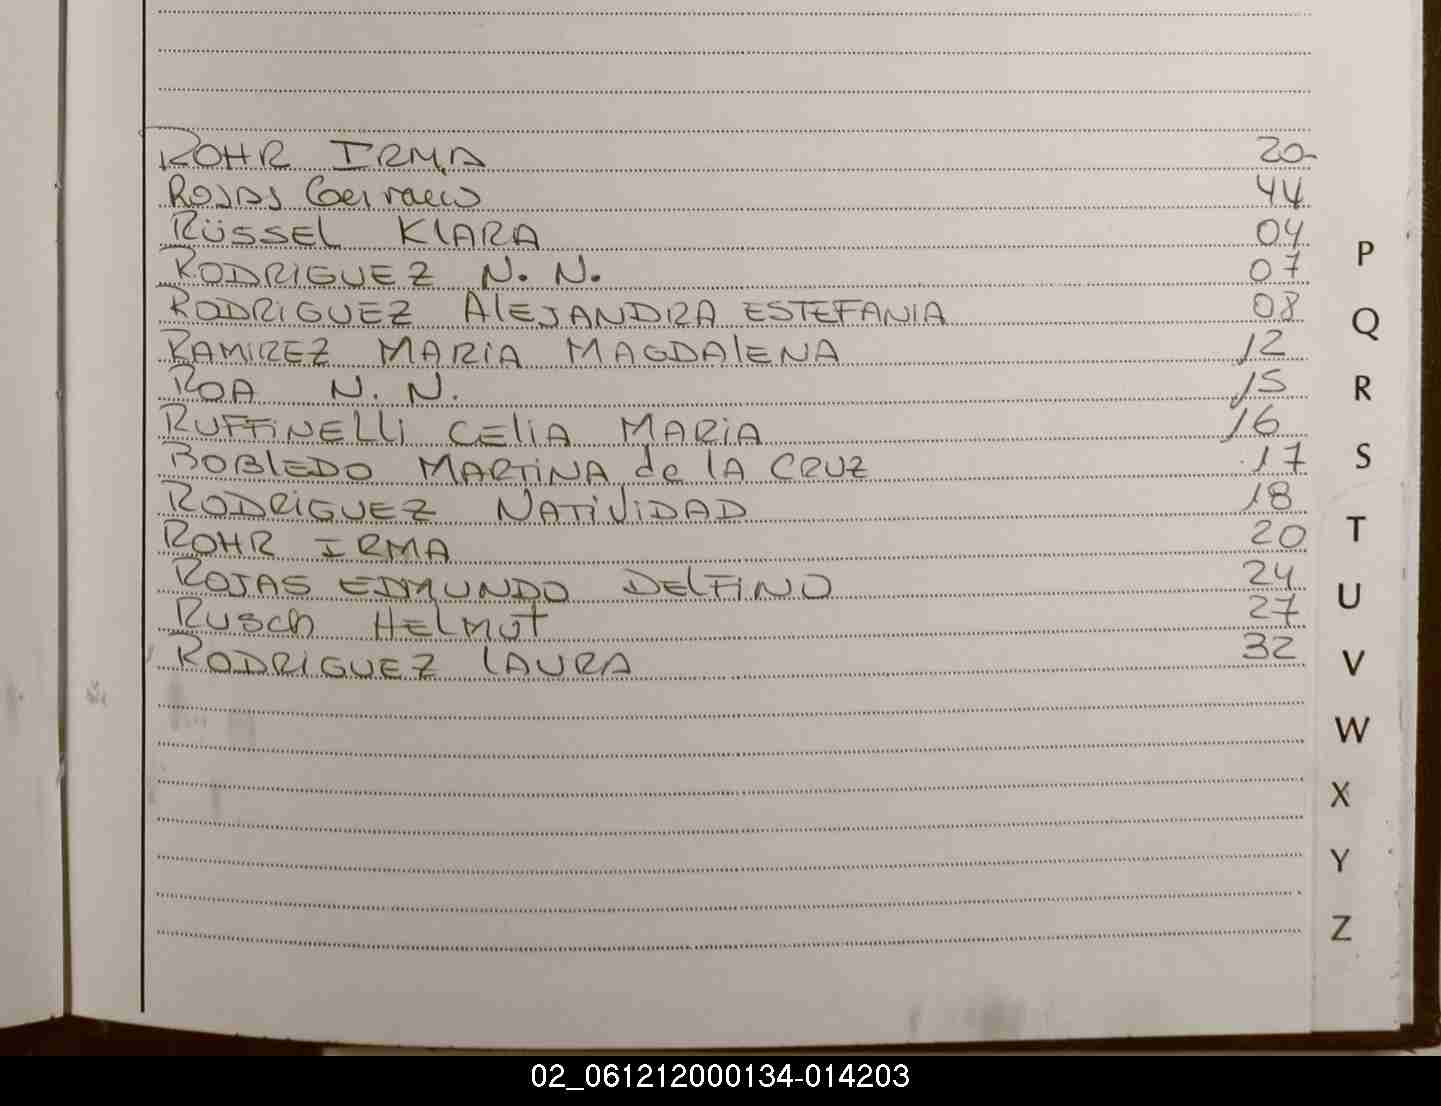 ROHR IRMA 20
ROJAS 44
RÜSSEL KLARA 04
RODRIGUEZ N. N. 07
RODRIGUEZ ALEJANDRA ESTEFANIA 08
RAMIREZ MARIA MAGDALENA 12
ROA N. N. 15
RUFFINELLI CELIA MARIA 16
ROBLEDO MARTINA de LA CRUZ 17
RODRIGUEZ NATIVIDAD 18
ROHR IRMA 20
ROJAS EDMUNDO DELFINO 24
RUSCH HELMUT 27
RODRIGUEZ LAURA 32
P
Q
R
S
T
U
V
W
X
Y
Z
02_061212000134-014203